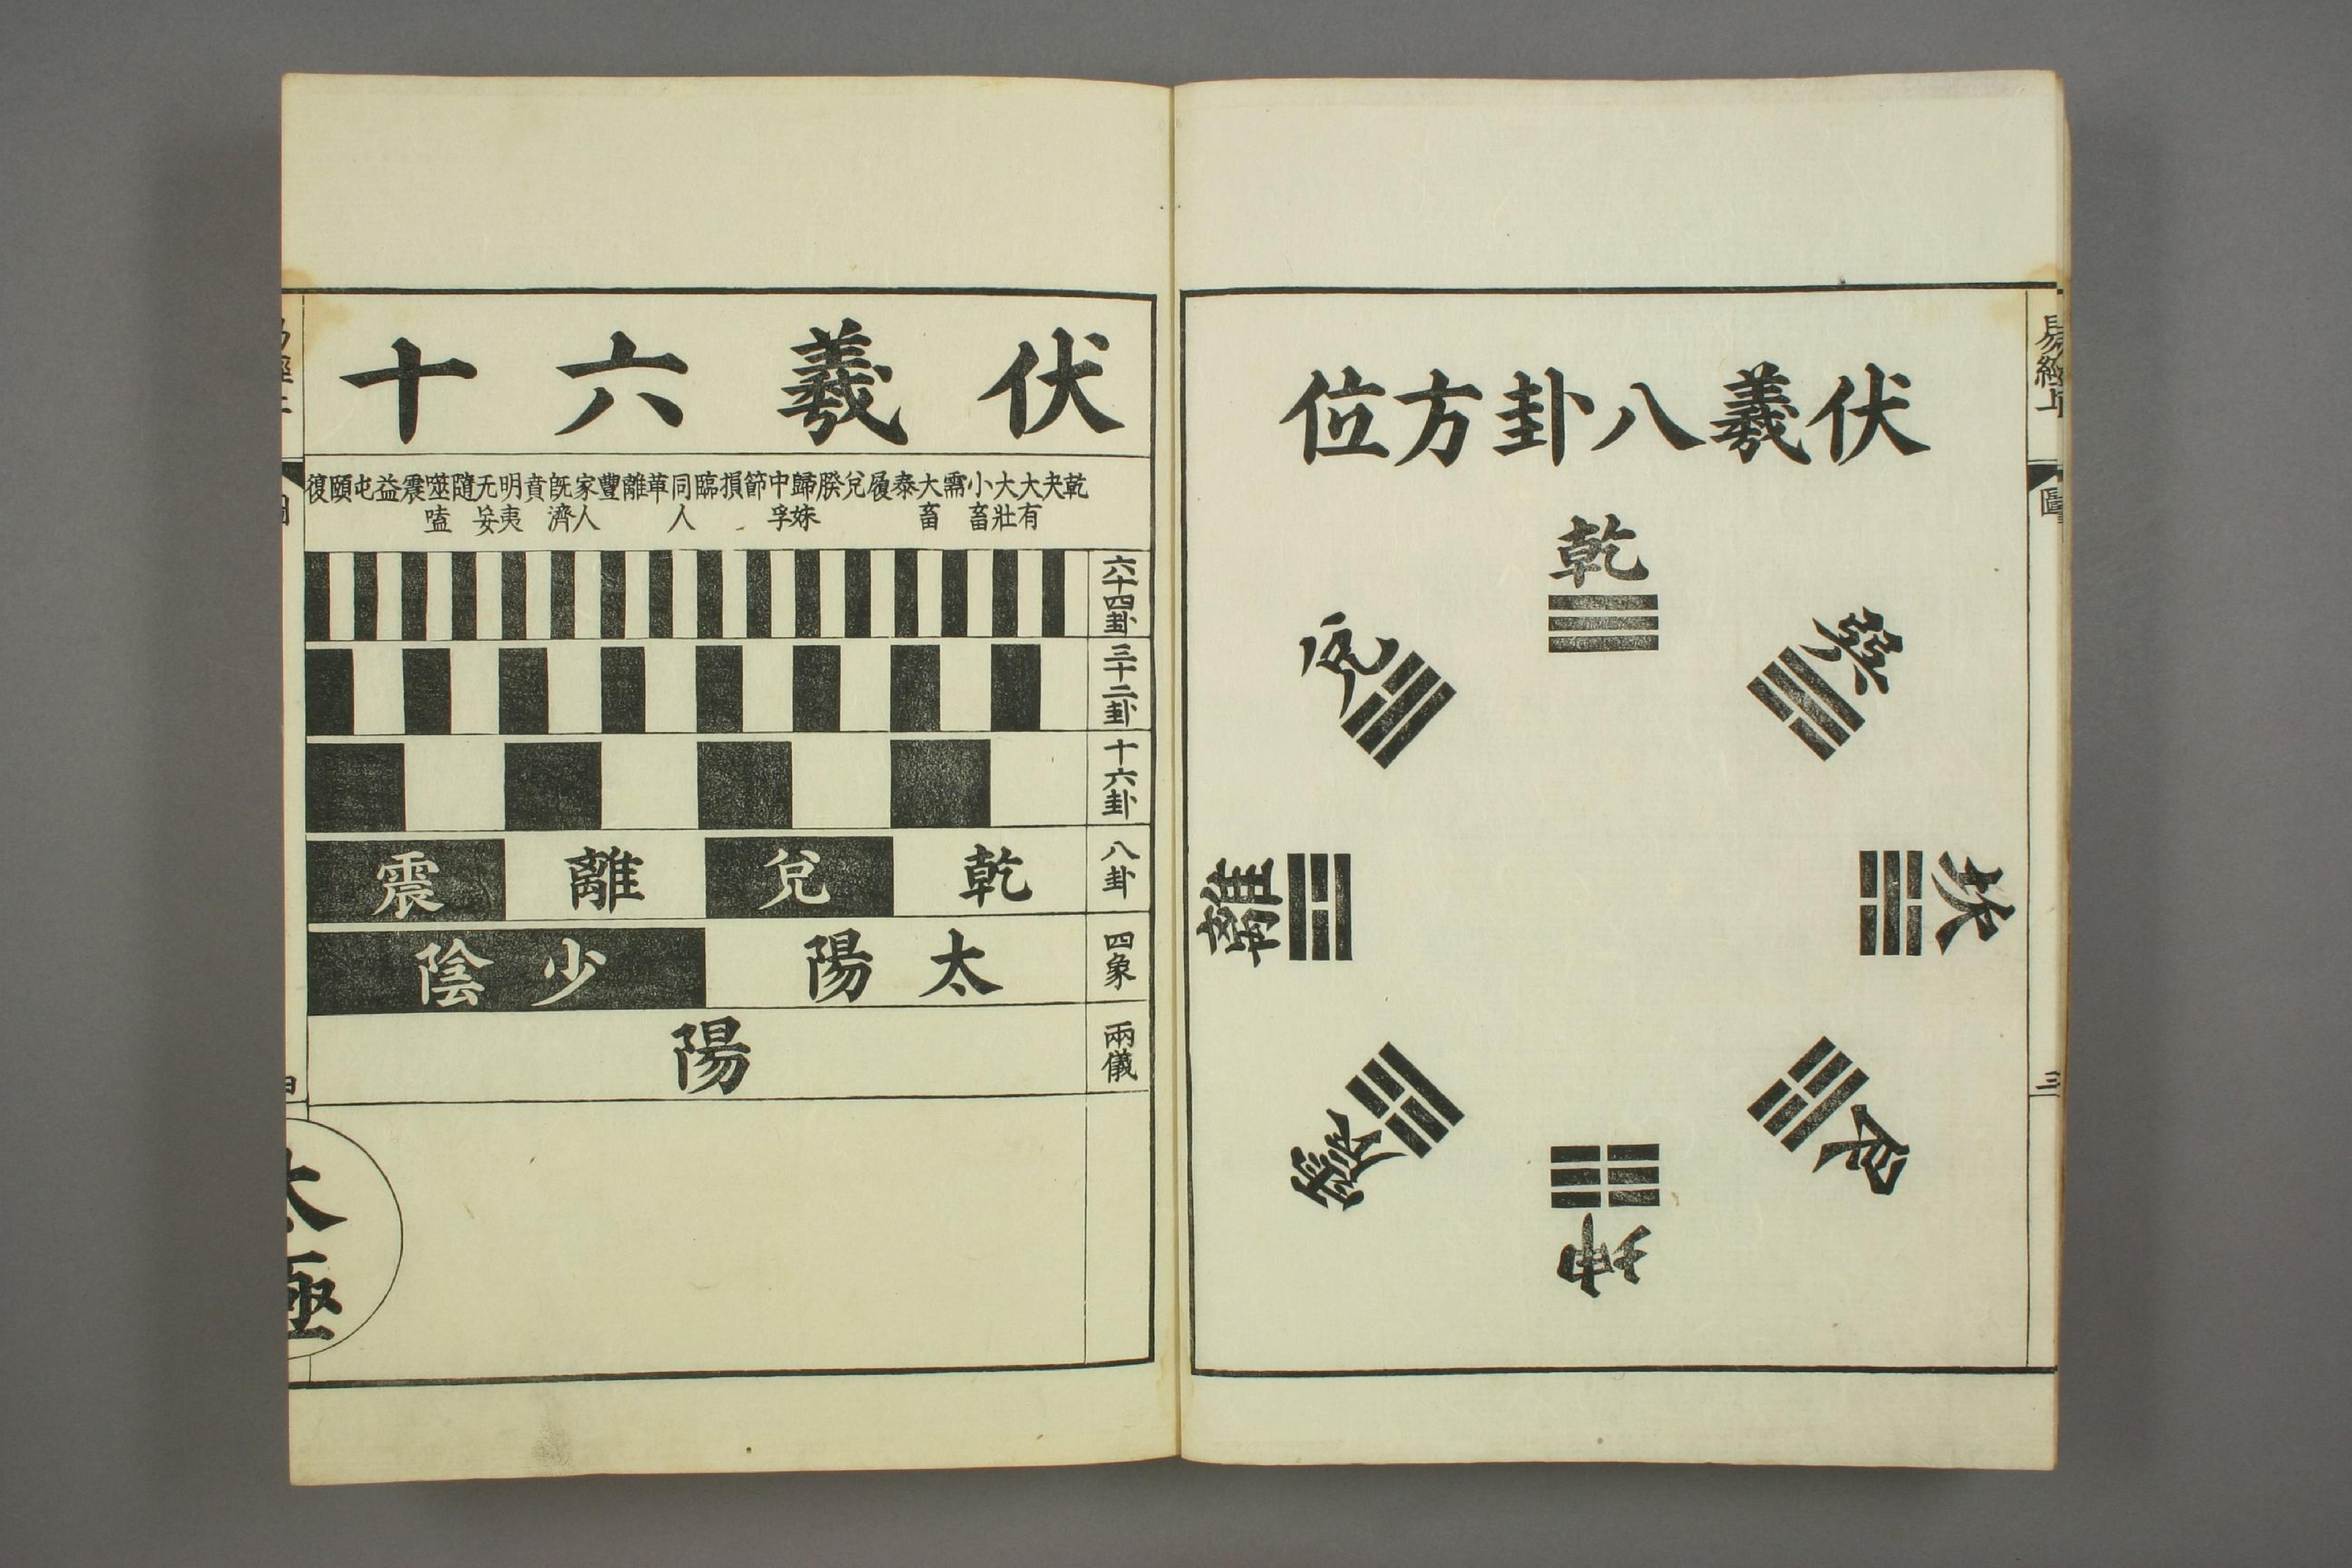 易經上
圖
三
伏羲八卦方位
乾
兌
巽
離
坎
震
艮
坤
伏羲六十
乾 夬 大有 大壯 小畜 需 大畜 泰 履 兌 睽 歸妹 中孚 節 損 臨 同人 革 離 豐 家人 既濟 賁 明夷 无妄 隨 噬嗑 震 益 屯 頤 復
六十四卦
三十二卦
十六卦
八卦 乾 兌 離 震
四象 太陽 少陰
兩儀 陽
太極